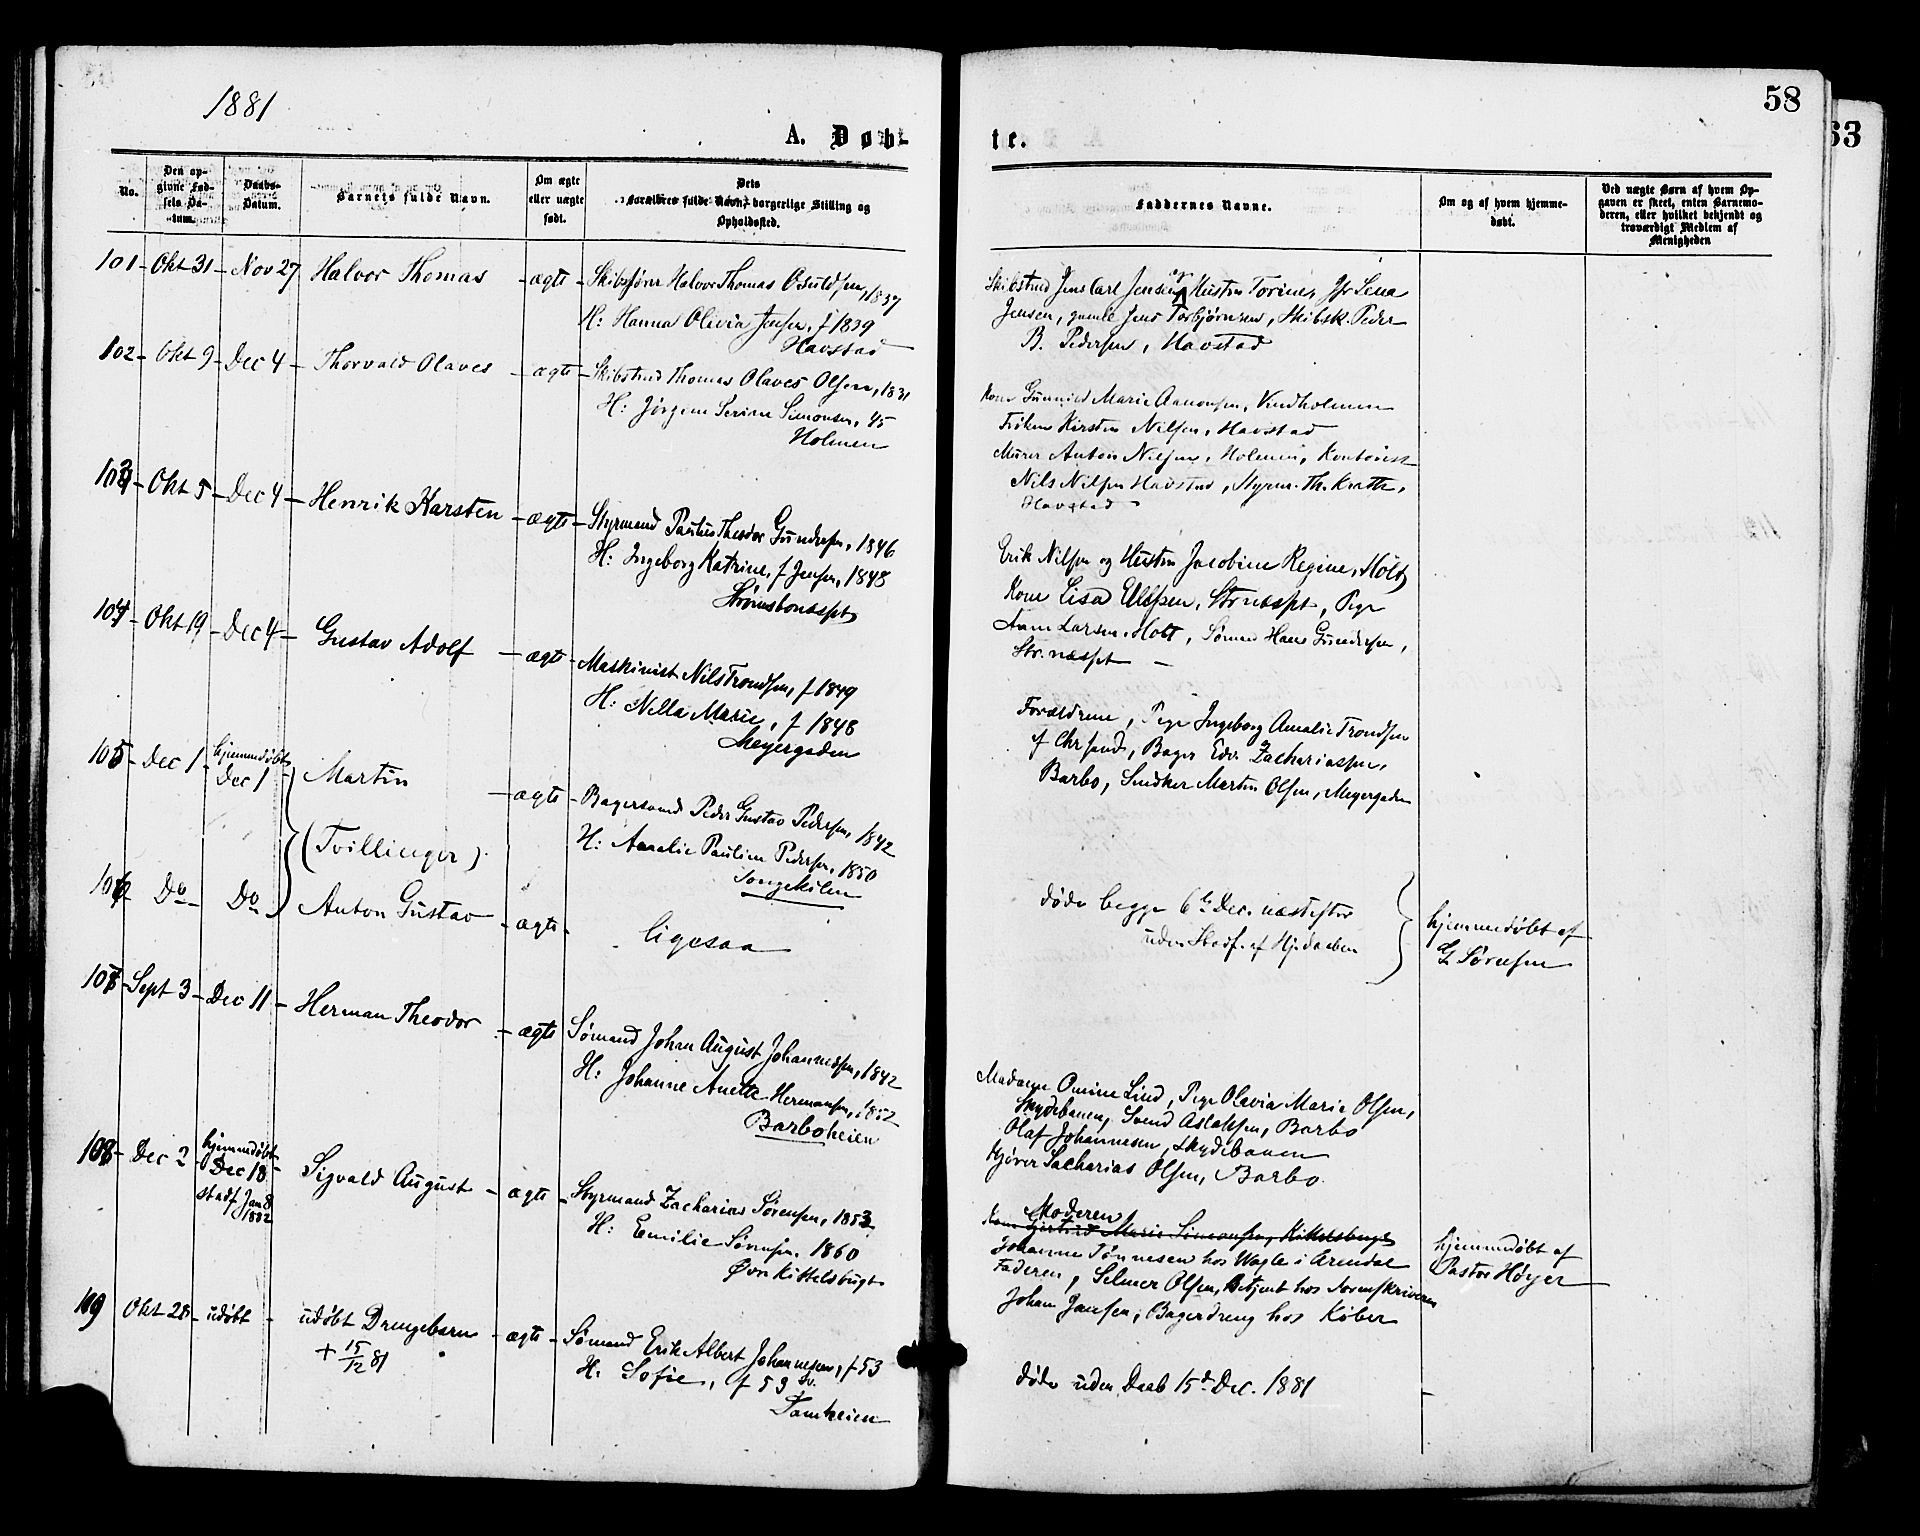 1881
58
63
A. Døbte.
No.
Den opgivne Fødsels Datum.
Daabs-Datum.
Barnets fulde Navn.
Om ægte eller uægte født.
Dets Forældres fulde Navn, borgerlige Stilling og Opholdssted.
Faddernes Navne.
Om og af hvem hjemmedøbt.
Ved uægte Børn af hvem Opgaven er skeet, enten Barnemoderen, eller hvilket bekjendt og troværdigt Medlem af Menigheden
101 - Okt 31 - Nov 27 Halvor Thomas - ægte - Skibsfører Halvor Thomas Osuldsen, 1837
H: Hanna Olivia Jensen, f 1839
Havstad
Skibstmd Jens Carl Jensen og Hustru Torine, Jfr Lina
Jensen, gamle Jens Torbjørnsen, Skibsk. Peder
B. Pedersen, Havstad
102 - Okt 9 - Dec 4 - Thorvald Olaves - ægte - Skibstmd Thomas Olaves Olsen, 1831
H: Jørgine Serine Simonsen, 45
Holmen
Kone Gunnild Marie Aanonsen, Vindholmen
Frøken Kirsten Nilsen, Havstad
Murer Anton Nilsen, Holmen, Kontorist
Nils Nilsen Havstad, Styrm. Th.
Havstad -
103 - Okt 5 - Dec 4 - Henrik Karsten - ægte - Styrmand Paulus Theodor Gundersen, 1846
H: Ingeborg Katrine, f Jensen, 1848
Strømsbonæsset
Erik Nilsen og Hustru Jacobine Regine, Holt
Kone Lisa Ellefsen, Strnæsset, Pige
Anne Larsen, Holt, Sømand Hans Gundersen,
Str.næsset -
104 - Okt 19 - Dec 4 - Gustav Adolf - ægte - Maskinist Nils Trondsen, f 1849
H: Nella Marie, f 1848
Meyergaden
Forældrene, Pige Ingeborg Amalie Trondsen
af Chrsand, Bager Edv. Zachariassen,
Barbo, Snedker Martin Olsen, Meyergaden
105 - Dec 1 - hjemmedøbt
Dec 1 - Martin - ægte - Bagersvend Peder Gustav Pedersen, 1842
H: Amalie Pauline Pedersen, 1850
Songekilen
(Tvillinger)
106 Do - Do - Anton Gustav - ægte - ligesaa
døde begge 6te Dec. næstefter
uden Stadf. af Hj.daaben
hjemmedøbt af
G Sørensen
107 - Sept 3 - Dec 11 - Herman Theodor - ægte Sømand Johan August Johannessen, 1842
H: Johanne Anette Hermansen, 1852
Barboheien
Madame Omine Lind, Pige Olavia Marie Olsen,
Skydebanen, Svend Aslaksen, Barbo
Olaf Johannesen, Skydebanen
Kjører Sacharias Olsen, Barbo.
108 - Dec 2 - hjemmedøbt
Dec 18 -
stadf Jan 8
1882
Sigvald August - ægte - Styrmand Zacharias Sørensen, 1853
H: Emilie Sørensen, 1860
Øvre Kittelsbugt
Moderen
Kone Gjertrud Marie Simonsen, Kittelsbugt
Johanne Tønnesen hos Wagle i Arendal
Faderen, Selmer Olsen, Betjent hos Sorenskriveren
Johan Jansen, Bagerdreng hos Køber
hjemmedøbt af
Pastor Høyer
109 Okt 28 - udøbt - udøbt Drengebarn - ægte - Sømand Erik Albert Johannesen, f 53
+ 15/12 81
H. Sofie, f 59
Tamheien
døde uden Daab 15de Dec. 1881